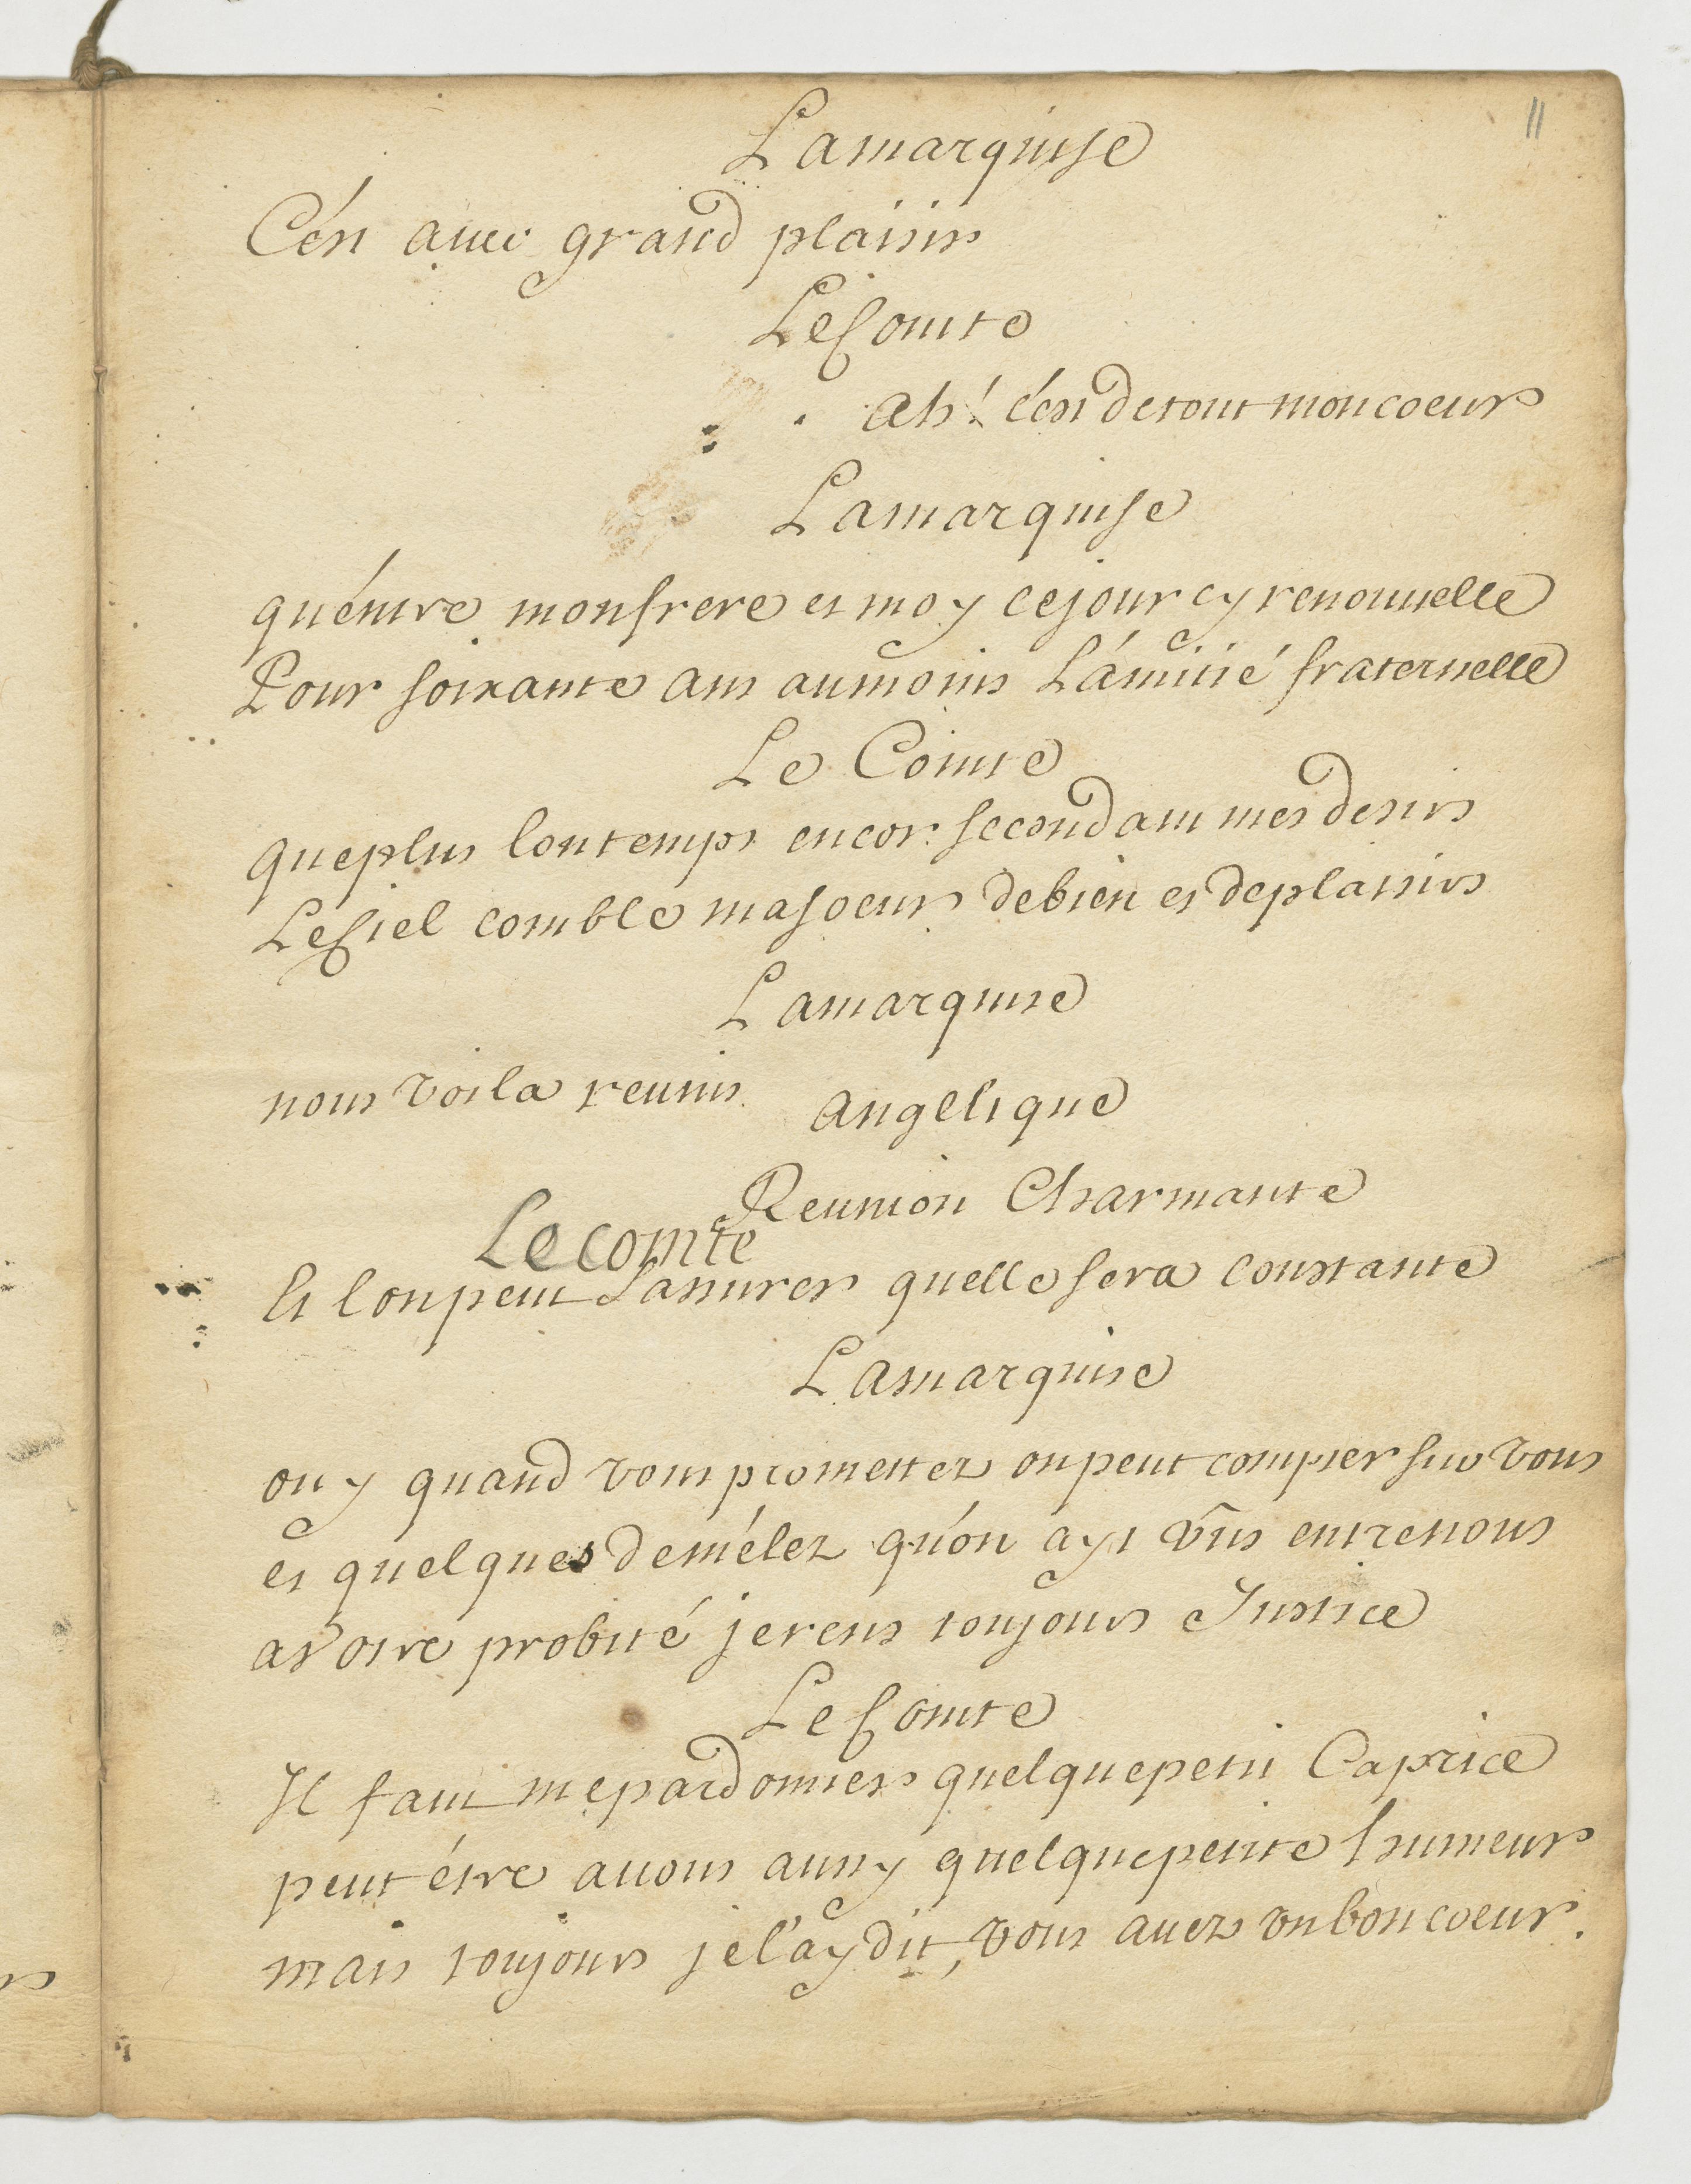 11
Lamarquise
C'ést auec grand plaisir
LeComte
Ah! c'ést detout moncoeur
Lamarquise
qu'éntre monfrere et moy cejour cy renouuelle
Pour soixante ans aumoins L'ámitié fraternelle
Le Comte
queplus lontemps encor secondant mes desirs
LeCiel comble masoeur debien et deplaisirs
Lamarquise
nous voila reunis
Angelique
Reunion Charmante
Le comte
Et lonpeut Sassurer quelle sera constante
Lamarquise
ouy quand vous promettez onpeut compter sur vous
et quelques deméler qu'ón ayt vûs entrenous
avotre probité jerens toujours Justice
LeComte
Il faut mepardonner quelquepetit Caprice
peut étre auons aussy quelquepetite humeur
mais toujours jel'ay dit, vous auez vnboncoeur.